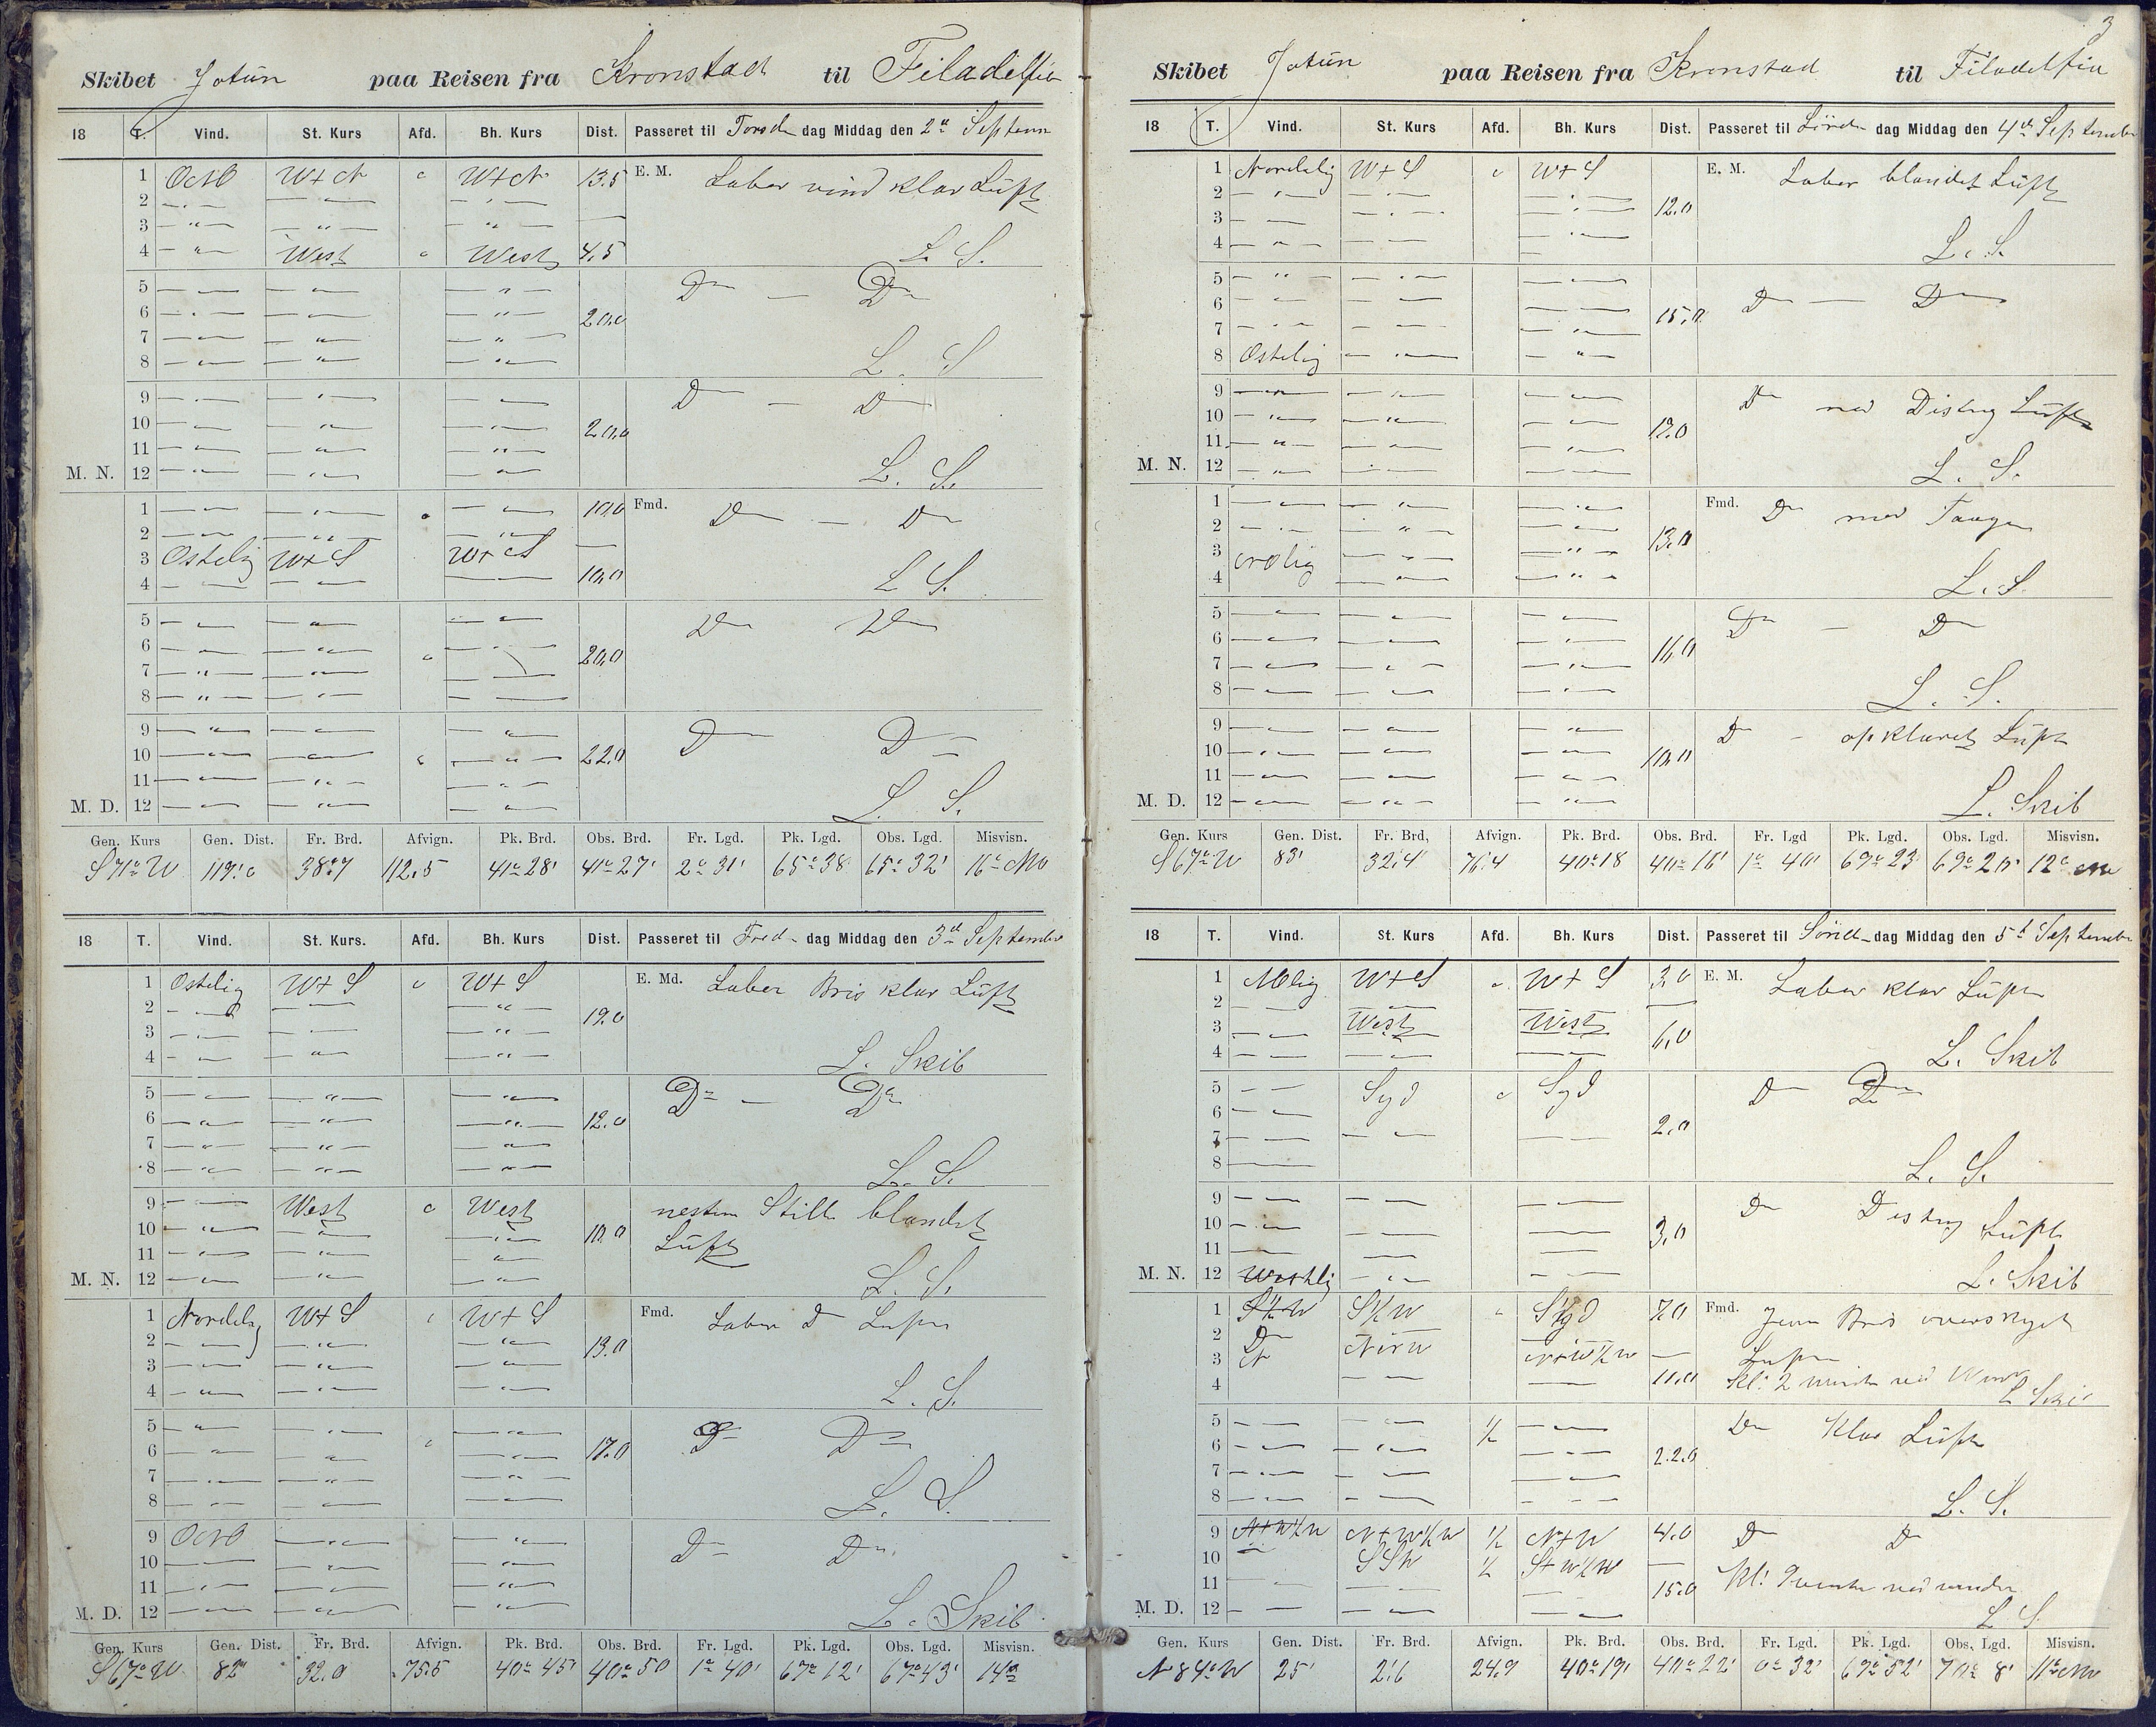 Skibet Jotun paa Reisen fra Kronstad til Filadelfia
18 T. Vind. St. Kurs Afd. Bh. Kurs Dist. Passeret til Torsd dag Middag den 2d Septemr
1 W+N W+N 13.5 E. M. Laber vind klar Luft
2
3
4 West West 4,5 L. S.
5 Do — Do
6 20,0
7
8 L. S
9 Do — Do
10 20,0
11
M. N. 12 L. S.
1 10,0 Fmd. Do — Do
2
3 Ostelig W+S W+S
4 10,0 L S.
5 Do Do
6
7 20,0
8
9 Do Do
10 22,0
11
M. D. 12 L. S.
Gen. Kurs Gen. Dist. Fr. Brd. Afvign. Pk. Brd. Obs. Brd. Fr. Lgd. Pk. Lgd. Obs. Lgd. Misvisn.
S 71° W 119' 38'7 112,5 41° 28' 41° 27' 2° 31' 65° 38' 65° 32' 16°
18 T. Vind. St. Kurs. Afd. Bh. Kurs Dist. Passeret til Fred- dag Middag den 3d September
1 Ostelig W+S W+S E. Md. Laber Bris klar Luft
2 19.0
3
4 L. Skib
5 Do — Do
6 12,0
7
8 L. S.
9 West West nesten Stille blandet
10 10,0 Luft
11
M. N. 12 L. S.
1 Nordelig W+S W+S Fmd. Laber Do Luft
2 13.0
3
4 L. S.
5 Do Do
6 17.0
7
8 L. S.
9 Do Do
10
11
M. D. 12 L. Skib
Gen. Kurs Gen. Dist. Fr. Brd. Afvign. Pk. Brd. Obs. Brd. Fr. Lgd. Pk. Lgd. Obs. Lgd. Misvisn.
S 67° W 82' 32.0 75.5 40° 45' 40° 50 1° 40' 67° 12' 67° 43' 14°
3
Skibet Jotun paa Reisen fra Kronstad til Filadelfia
18 T. Vind. St. Kurs Afd. Bh. Kurs Dist. Passeret til Lörd dag Middag den 4d September
1 Nordelig W+S W+S E. M. Laber blandet Luft
2 12.0
3
4 L. S.
5 Do — Do
6 15,0
7
8 Ostelig
9 Do med Disig Luft
10 17.0
11
M. N. 12 L. S.
1 Fmd. Do med Taage
2 13.0
3
4 L. S.
5 Do — Do
6 16,0
7
8 L. S.
9 Do — opklaret Luft
10 10,0
11
M. D. 12 L. Skib
Gen. Kurs Gen. Dist. Fr. Brd, Afvign. Pk. Brd. Obs. Brd. Fr. Lgd Pk. Lgd. Obs. Lgd. Misvisn.
S 67° W 83' 32,4' 76'4 40° 18 40° 16' 1° 40' 69° 23' 69° 20' 12°
18 T. Vind. St. Kurs Afd. Bh. Kurs Dist. Passeret til Sönd- dag Middag den 5t September
1 W+S W+S 3,0 E. M. Laber klar Luft
2
3 West West 6,0
4 L. Skib
5 Syd Syd Do Do
6 2,0
7
8 L. S.
9 Do Disig Luft
10 3,0
11
M. N. 12 Westlig L. Skib
1 S½W Syd 7,0 Fmd. Jevn Bris overskyet
2 Do Luft
3 N
4 11,0 Kl: 2 L Skib
5 ½ Do Klar Luft
6 22.0
7
8 L. S.
9 N+W½W ½ N+W 4,0 Do Do
10 SSW ½ S+W½W
11 15.0 Kl: 9
M. D. 12 L S
Gen. Kurs Gen. Dist. Fr. Brd. Afvign. Pk. Brd. Obs. Brd. Fr. Lgd. Pk. Lgd. Obs, Lgd. Misvisn.
N 84° W 25' 2'6 24,9 40° 19' 40° 22' 0° 32' 69° 52' 70° 8' 11°